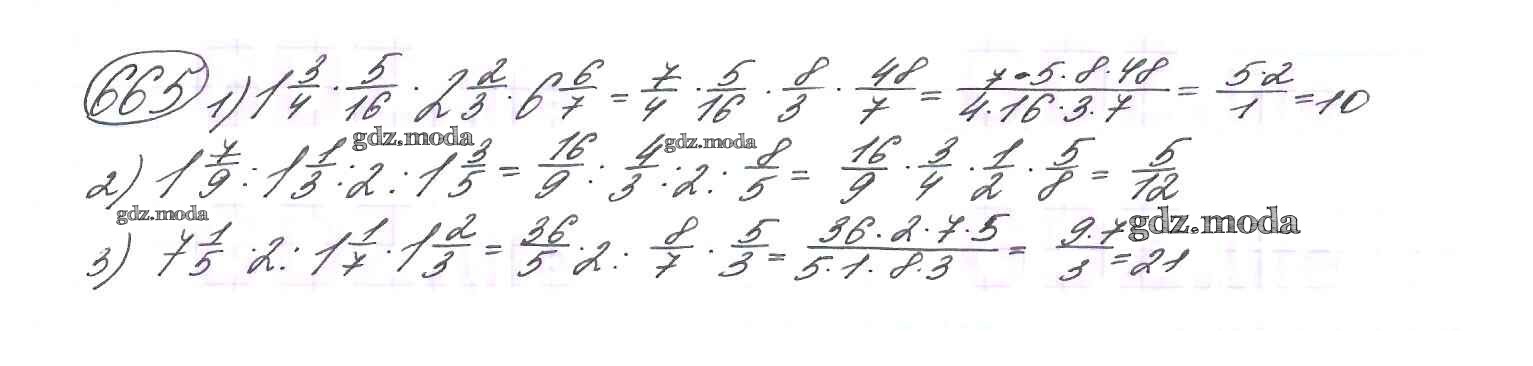 665 1) 1 3/4 · 5/16 · 2 2/3 · 6 6/7 = 7/4 · 5/16 · 8/3 · 48/7 = 7·5·8·48/4·16·3·7 = 5·2/1 = 10
gdz.moda gdz.moda
2) 1 7/9 : 1 1/3 : 2 : 1 3/5 = 16/9 : 4/3 : 2 : 8/5 = 16/9 · 3/4 · 1/2 · 5/8 = 5/12
gdz.moda gdz.moda
3) 7 1/5 · 2 : 1 1/7 · 1 2/3 = 36/5 · 2 : 8/7 · 5/3 = 36·2·7·5/5·1·8·3 = 9·7/3 = 21